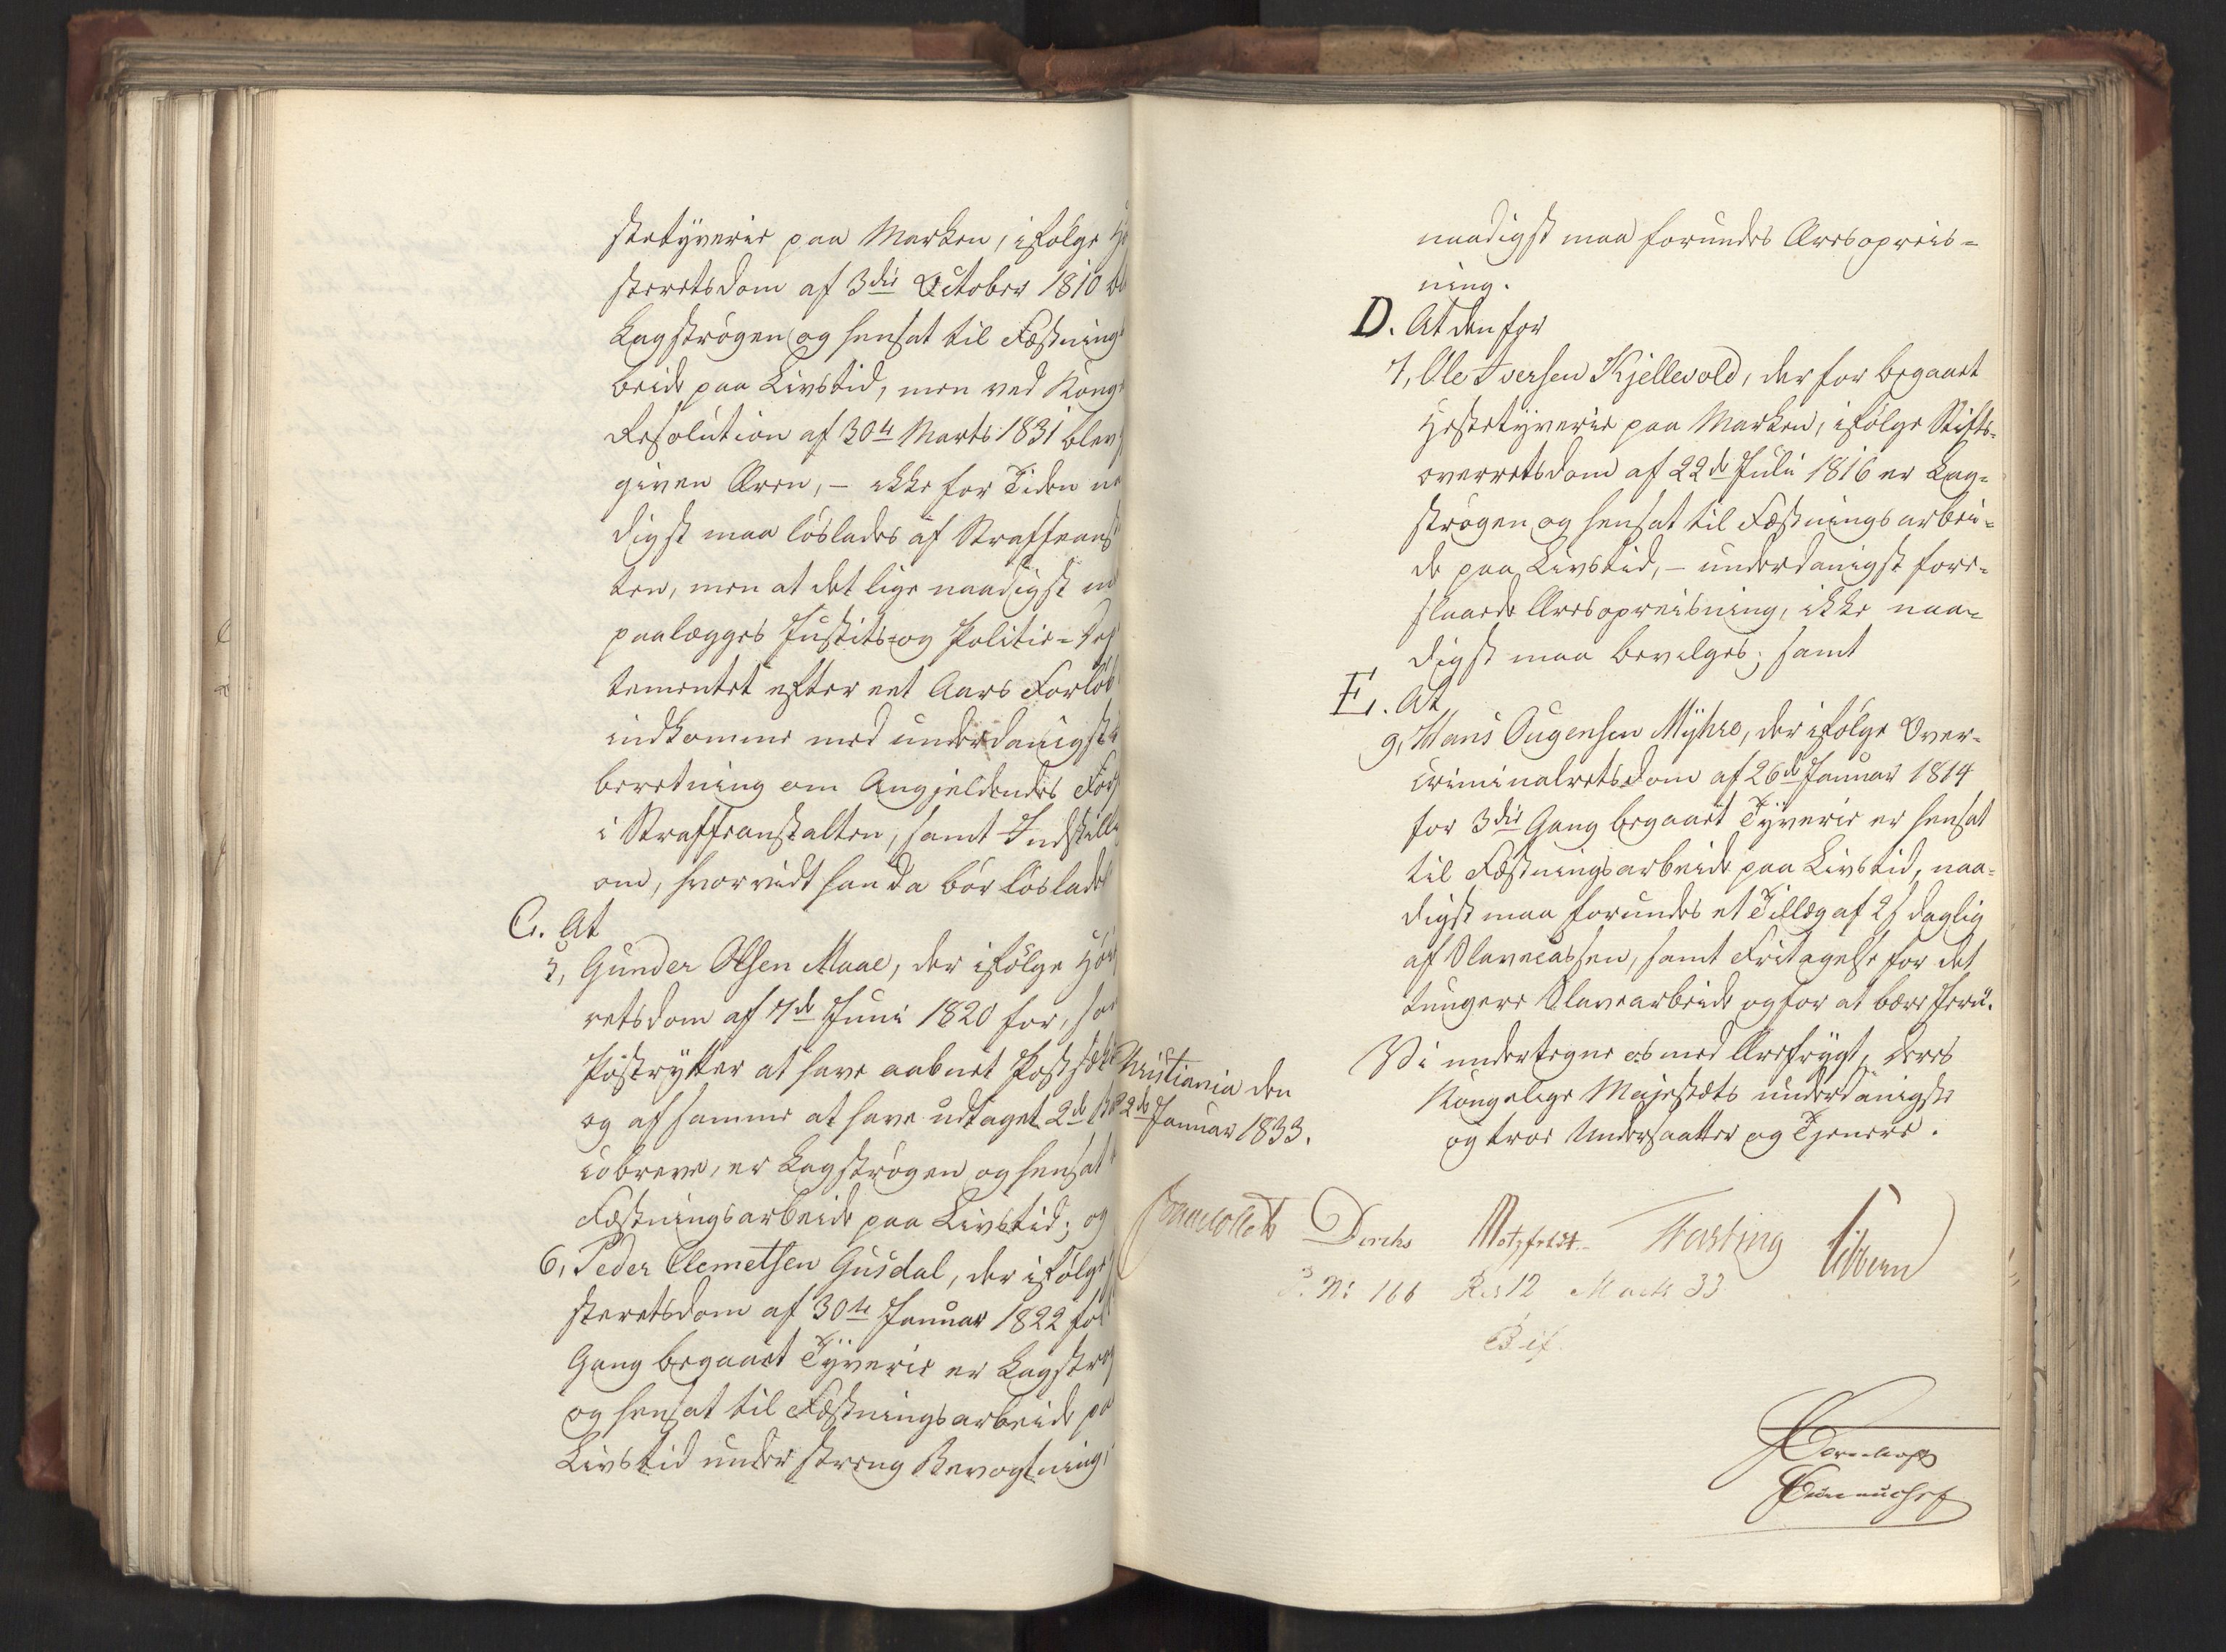 stetyverie paa Marken, ifølge Hø
steretsdom af 3die October 1810 bl
Kagstrøgen og hensat til Fæstnings
beide paa Livstid, men ved Kong
Resolution af 30te Marts 1831 blev
given Æren, – ikke for Tiden na
digst maa løslades af Straffeans
ten, men at det lige naadigst m
paalægges Justits- og Politie-Dep
tementet efter eet Aars Forløb
indkomme med underdanigst
beretning om Angjeldendes Forh
i Straffeanstalten, samt Indstill
om, hvorvidt han da bør løslades
C. At
5, Gunder Olsen Maae, der ifølge Høi
retsdom af 7de Juni 1820 for, so
Postrytter at have aabnet Postsæk
og af samme at have udtaget 2de Ba
cobreve, er Kagstrøgen og hensat t
Fæstningsarbeide paa Livstid; og
6, Peder Clemetsen Gusdal, der ifølge
steretsdom af 30te Januar 1822 for
Gang begaaet Tyverie er Kagstrøg
og hensat til Fæstningsarbeide pa
Livstid under streng Bevogtning,
naadigst maa forundes Æresopreis-
ning.
D. At den for
7, Ole Iversen Kjellevold, der for begaaet
Hestetyverie paa Marken, ifølge Stifts-
overretsdom af 22de Juli 1816 er Kag-
strøgen og hensat til Fæstningsarbei-
de paa Livstid, – underdanigst fore-
slaaede Æresopreisning, ikke naa-
digst maa bevilges; samt
E. At
9, Hans Ougensen Myhre, der ifølge Over-
criminalretsdom af 26de Januar 1814
for 3die Gang begaaet Tyverie er hensat
til Fæstningsarbeide paa Livstid, naa-
digst maa forundes et Tillæg af 2 s daglig
af Slavecassen, samt Fritagelse for det
tungere Slavearbeide og for at bære Jern.
Vi undertegne os med Ærefrygt, Deres
Kongelige Majestæts underdanigste
og troe Undersaatter og Tjenere.
Christiania den
22de Januar 1833.
Jonas Collett Diriks Motzfeldt Fasting Sibbern
No 166 Res 12 Marts 33
Bif.